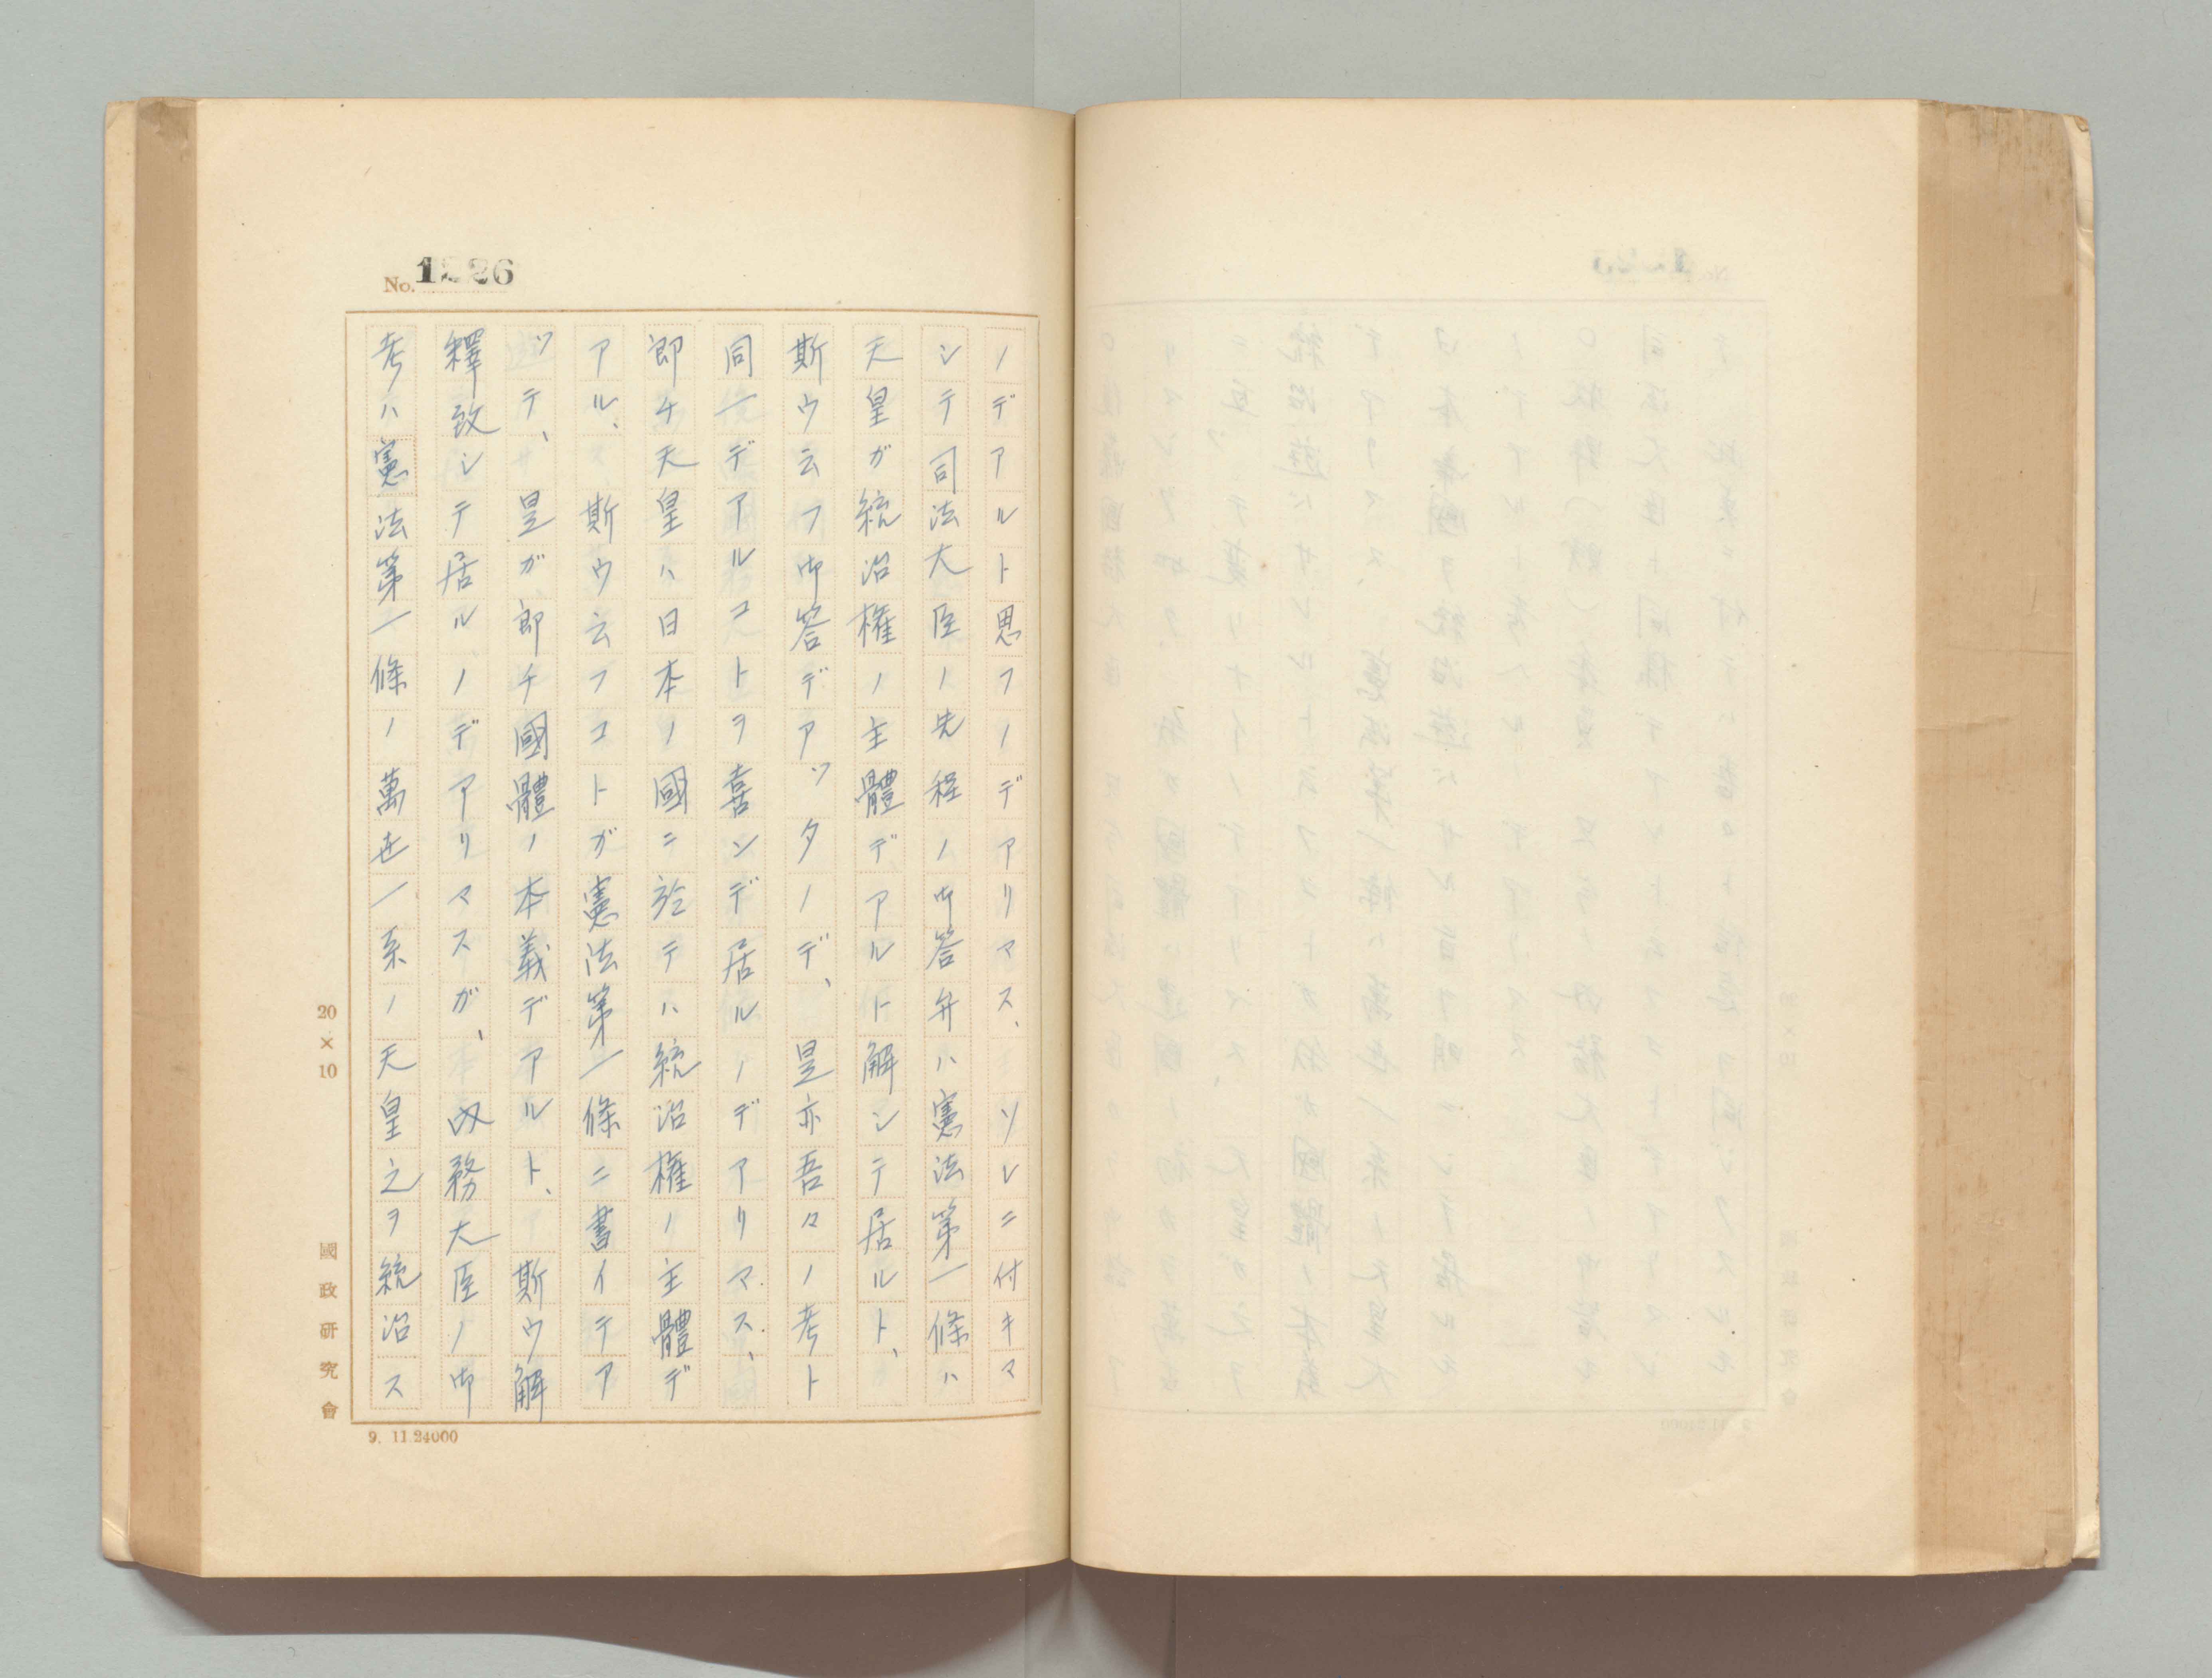 No. 1226
ノデアルト思フノデアリマス、ソレニ付キマ
シテ司法大臣ノ先程ノ御答弁ハ憲法第一條ハ
天皇ガ統治權ノ主體デアルト解シテ居ルト、
斯ウ云フ御答デアッタノデ、是亦吾々ノ考ト
同一デアルコトヲ喜ンデ居ルノデアリマス、
即チ天皇ハ日本ノ國ニ於テハ統治權ノ主體デ
アル、斯ウ云フコトガ憲法第一條ニ書イテア
ッテ、是ガ即チ國體ノ本義デアルト、斯ウ解
釋致シテ居ルノデアリマスガ、内務大臣ノ御
考ハ憲法第一條ノ萬世一系ノ天皇之ヲ統治ス
20×10
國政研究會
9. 11.24000